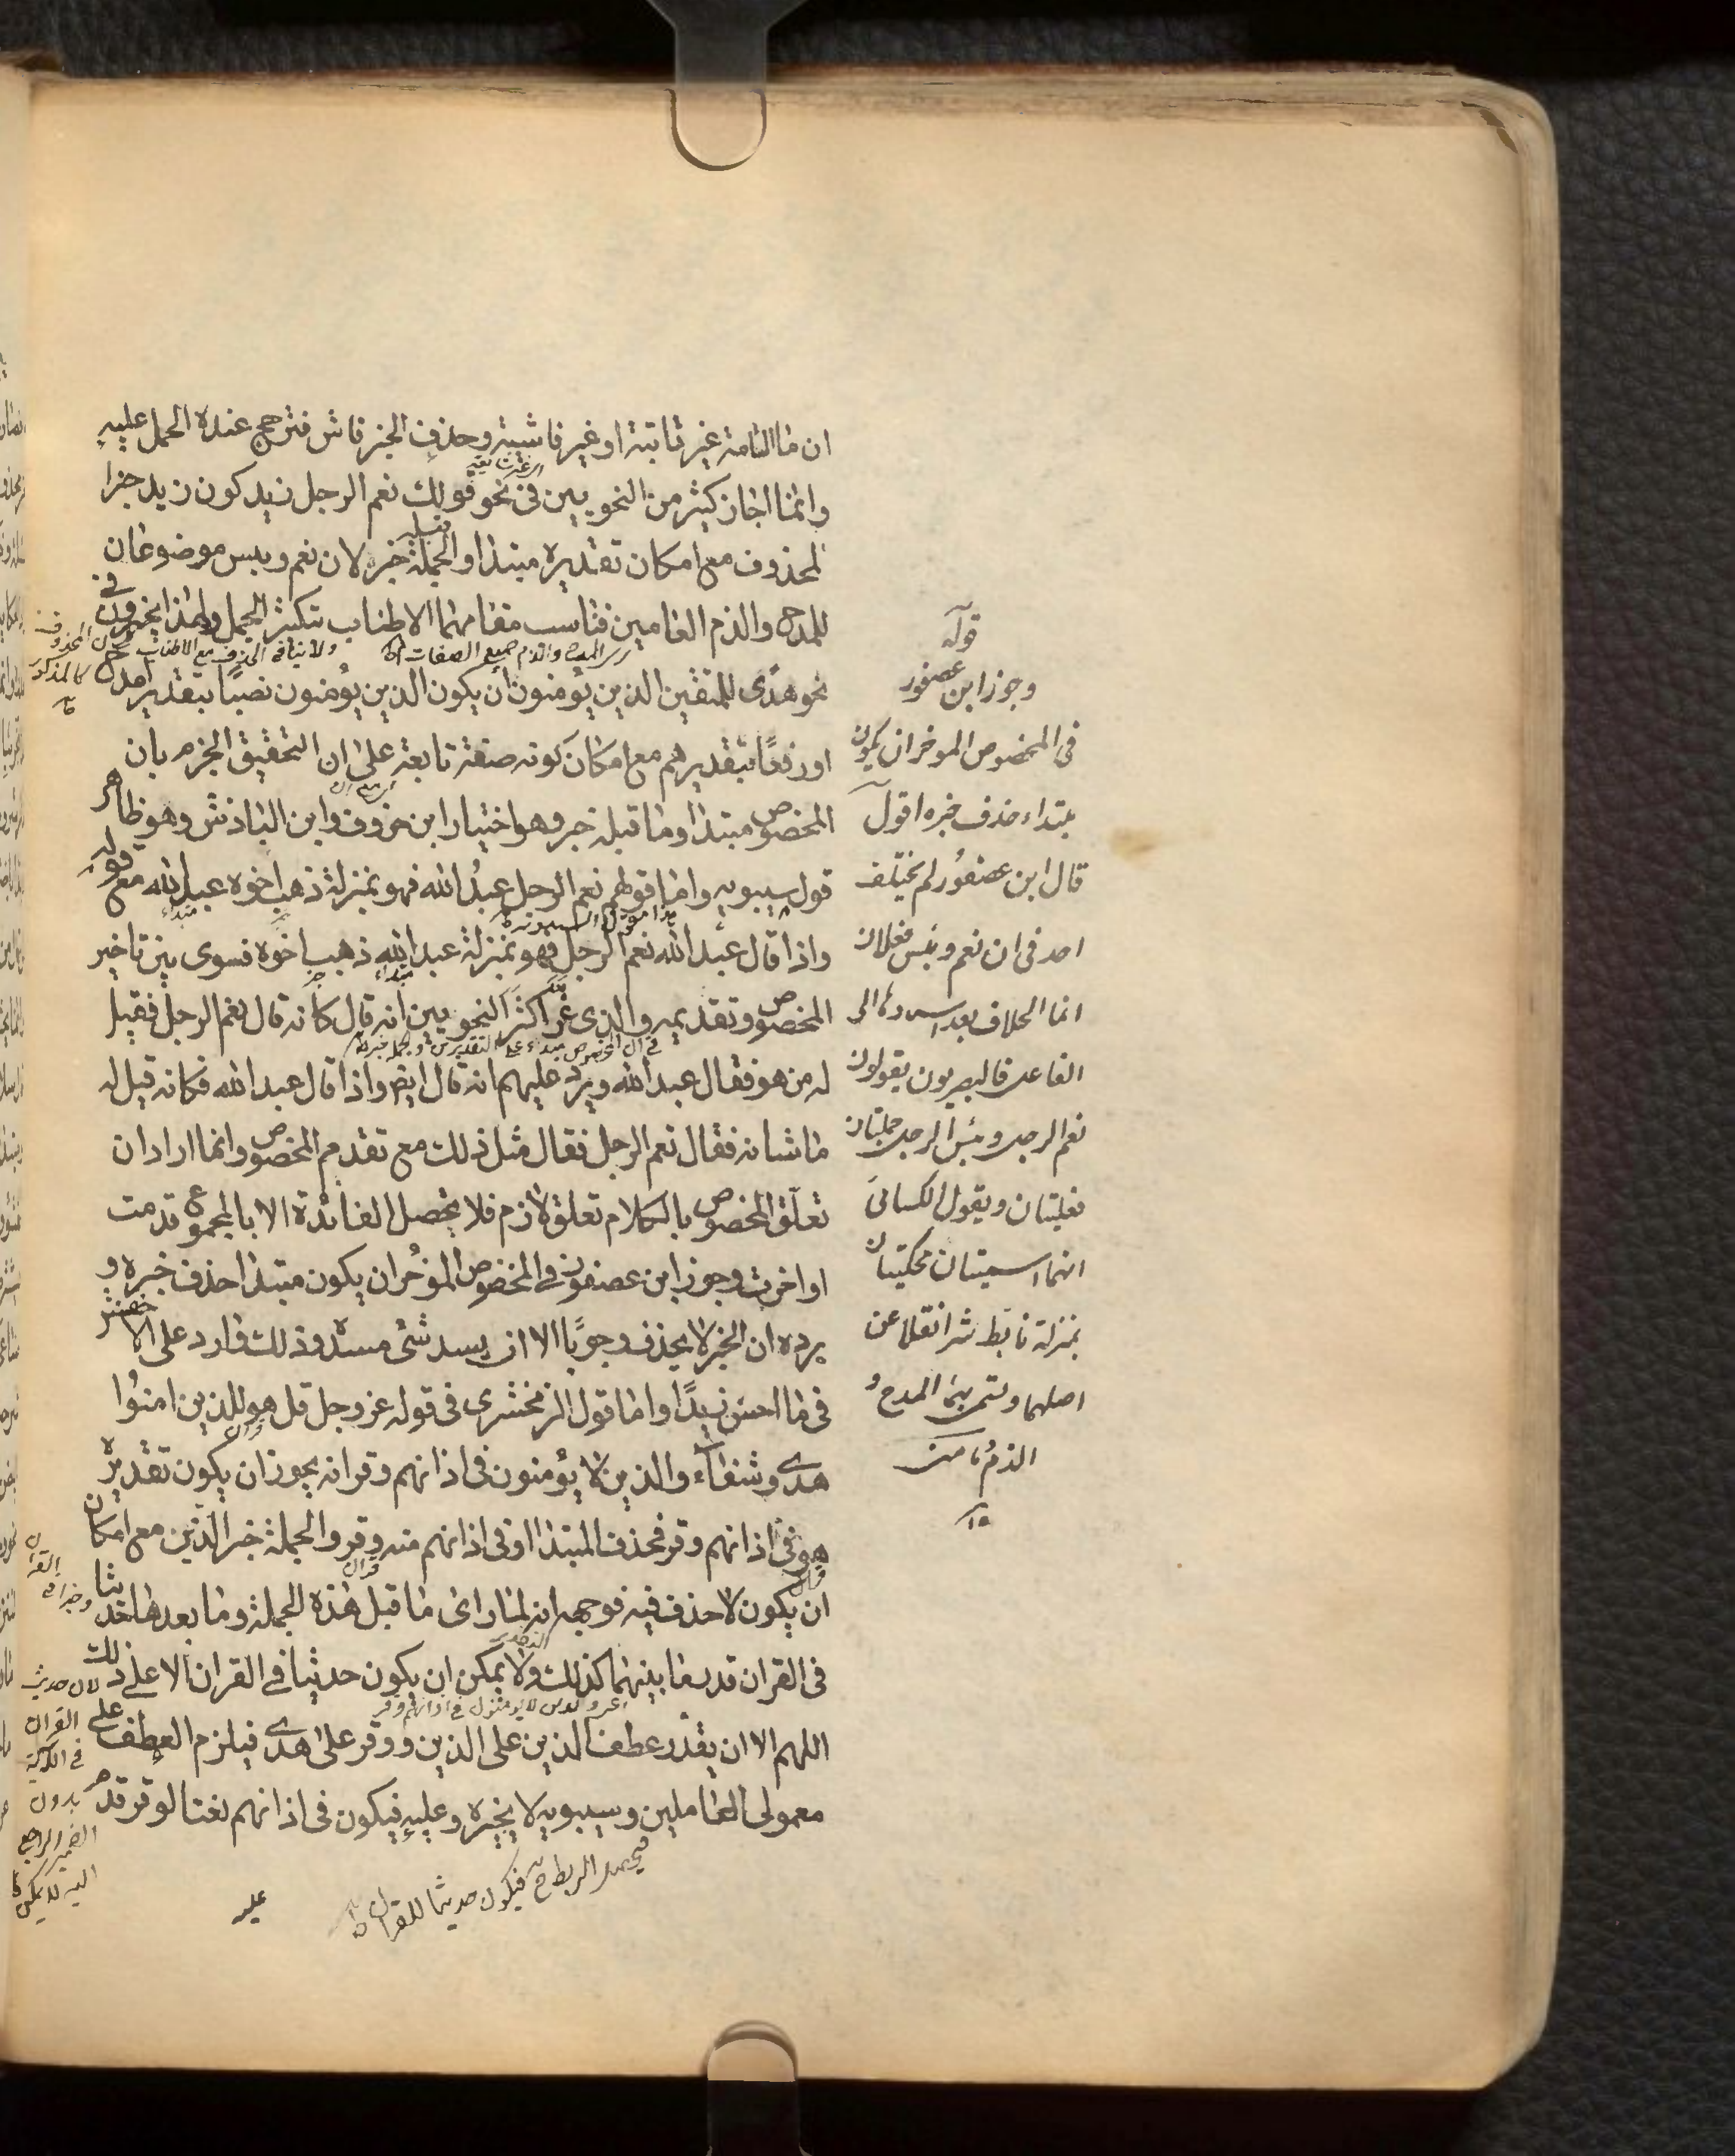 ان ما التامة غير ثابتة او غير فاشية وحذف الخبر فاش فترجح عنده الحمل عليه
وانما اجاز كثير من النحويين في نحو قولك نعم الرجل زيد كون زيد خبرا
لمحذوف مع امكان تقديره مبتدا والجملة قبله خبره لان نعم وبيس موضوعان
للمدح والذم العامين فناسب مقامهما الاطناب بتكثير الجمل ولهذا يجيزون في
نحو هدى للمتقين الذين يؤمنون ان يكون الذين يؤمنون نصبا بتقدير امدح
او رفعا بتقدير هم مع امكان كونه صفة تابعة على ان التحقيق الجزم بان
المخصوص مبتدا وما قبله خبر وهو اختيار ابن خروف وابن الباذش وهو ظاهر
قول سيبويه واما قولهم نعم الرجل عبد الله فهو بمنزلة ذهب اخوه عبد الله مع قوله
واذا قال عبد الله نعم الرجل فهو بمنزلة عبد الله ذهب اخوه فسوى بين تاخير
المخصوص وتقديمه والذي غر اكثر النحويين انه قال كانه قال نعم الرجل فقيل
له من هو فقال عبد الله ويرد عليهم انه قال ايضا واذا قال عبد الله فكانه قيل له
ما شانه فقال نعم الرجل فقال مثل ذلك مع تقدم المخصوص وانما اراد ان
تعلق المخصوص بالكلام تعلق لازم فلا يحصل الفائدة الا بالمجموع قدمت
او اخرت وجوز ابن عصفور في المخصوص المؤخر ان يكون مبتدا حذف خبره و
يرده ان الخبر لا يحذف وجوبا الا ان يسد شئ مسده وذلك وارد على الاخفش
في ما احسن زيدا واما قول الزمخشري في قوله عز وجل قل هو للذين امنوا
هدى وشفاء والذين لا يؤمنون في اذانهم وقر انه يجوز ان يكون تقديره
هو في اذانهم وقر فحذف المبتدا او في اذانهم منه وقر والجملة خبر الذين مع امكان
ان يكون لا حذف فيه فوجهه انه لما راى ما قبل هذه الجملة وما بعدها حديثا
في القران قدر ما بينهما كذلك ولا يمكن ان يكون حديثا في القران الا على ذلك
اللهم الا ان يقدر عطف الذين على الذين ووقر على هدى فيلزم العطف على
معمولي العاملين وسيبويه لا يجيزه وعليه فيكون في اذانهم نعتا لوقر قدم
عليه
قوله
وجوز ابن عصفور
في المخصوص الموخر ان يكون
مبتداء حذف خبره اقول
قال ابن عصفور لم يختلف
احد في ان نعم وبئس فعلان
انما الخلاف بعد اسنادهما الى
الفاعل فالبصريون يقولون
نعم الرجل وبئس الرجل جملتان
فعليتان ويقول الكسائي
انهما اسميتان محكيتان
بمنزلة تابط شرا نقلا عن
اصلهما وسمى بهما المدح و
الذم
ولا ينافي الحذف مع الاطناب
كالمذكور
لان حديث
القران
في
بدون
الضمير الراجع
اليه لا يمكن
فيحصل الربط ح فيكون حديثا للقران